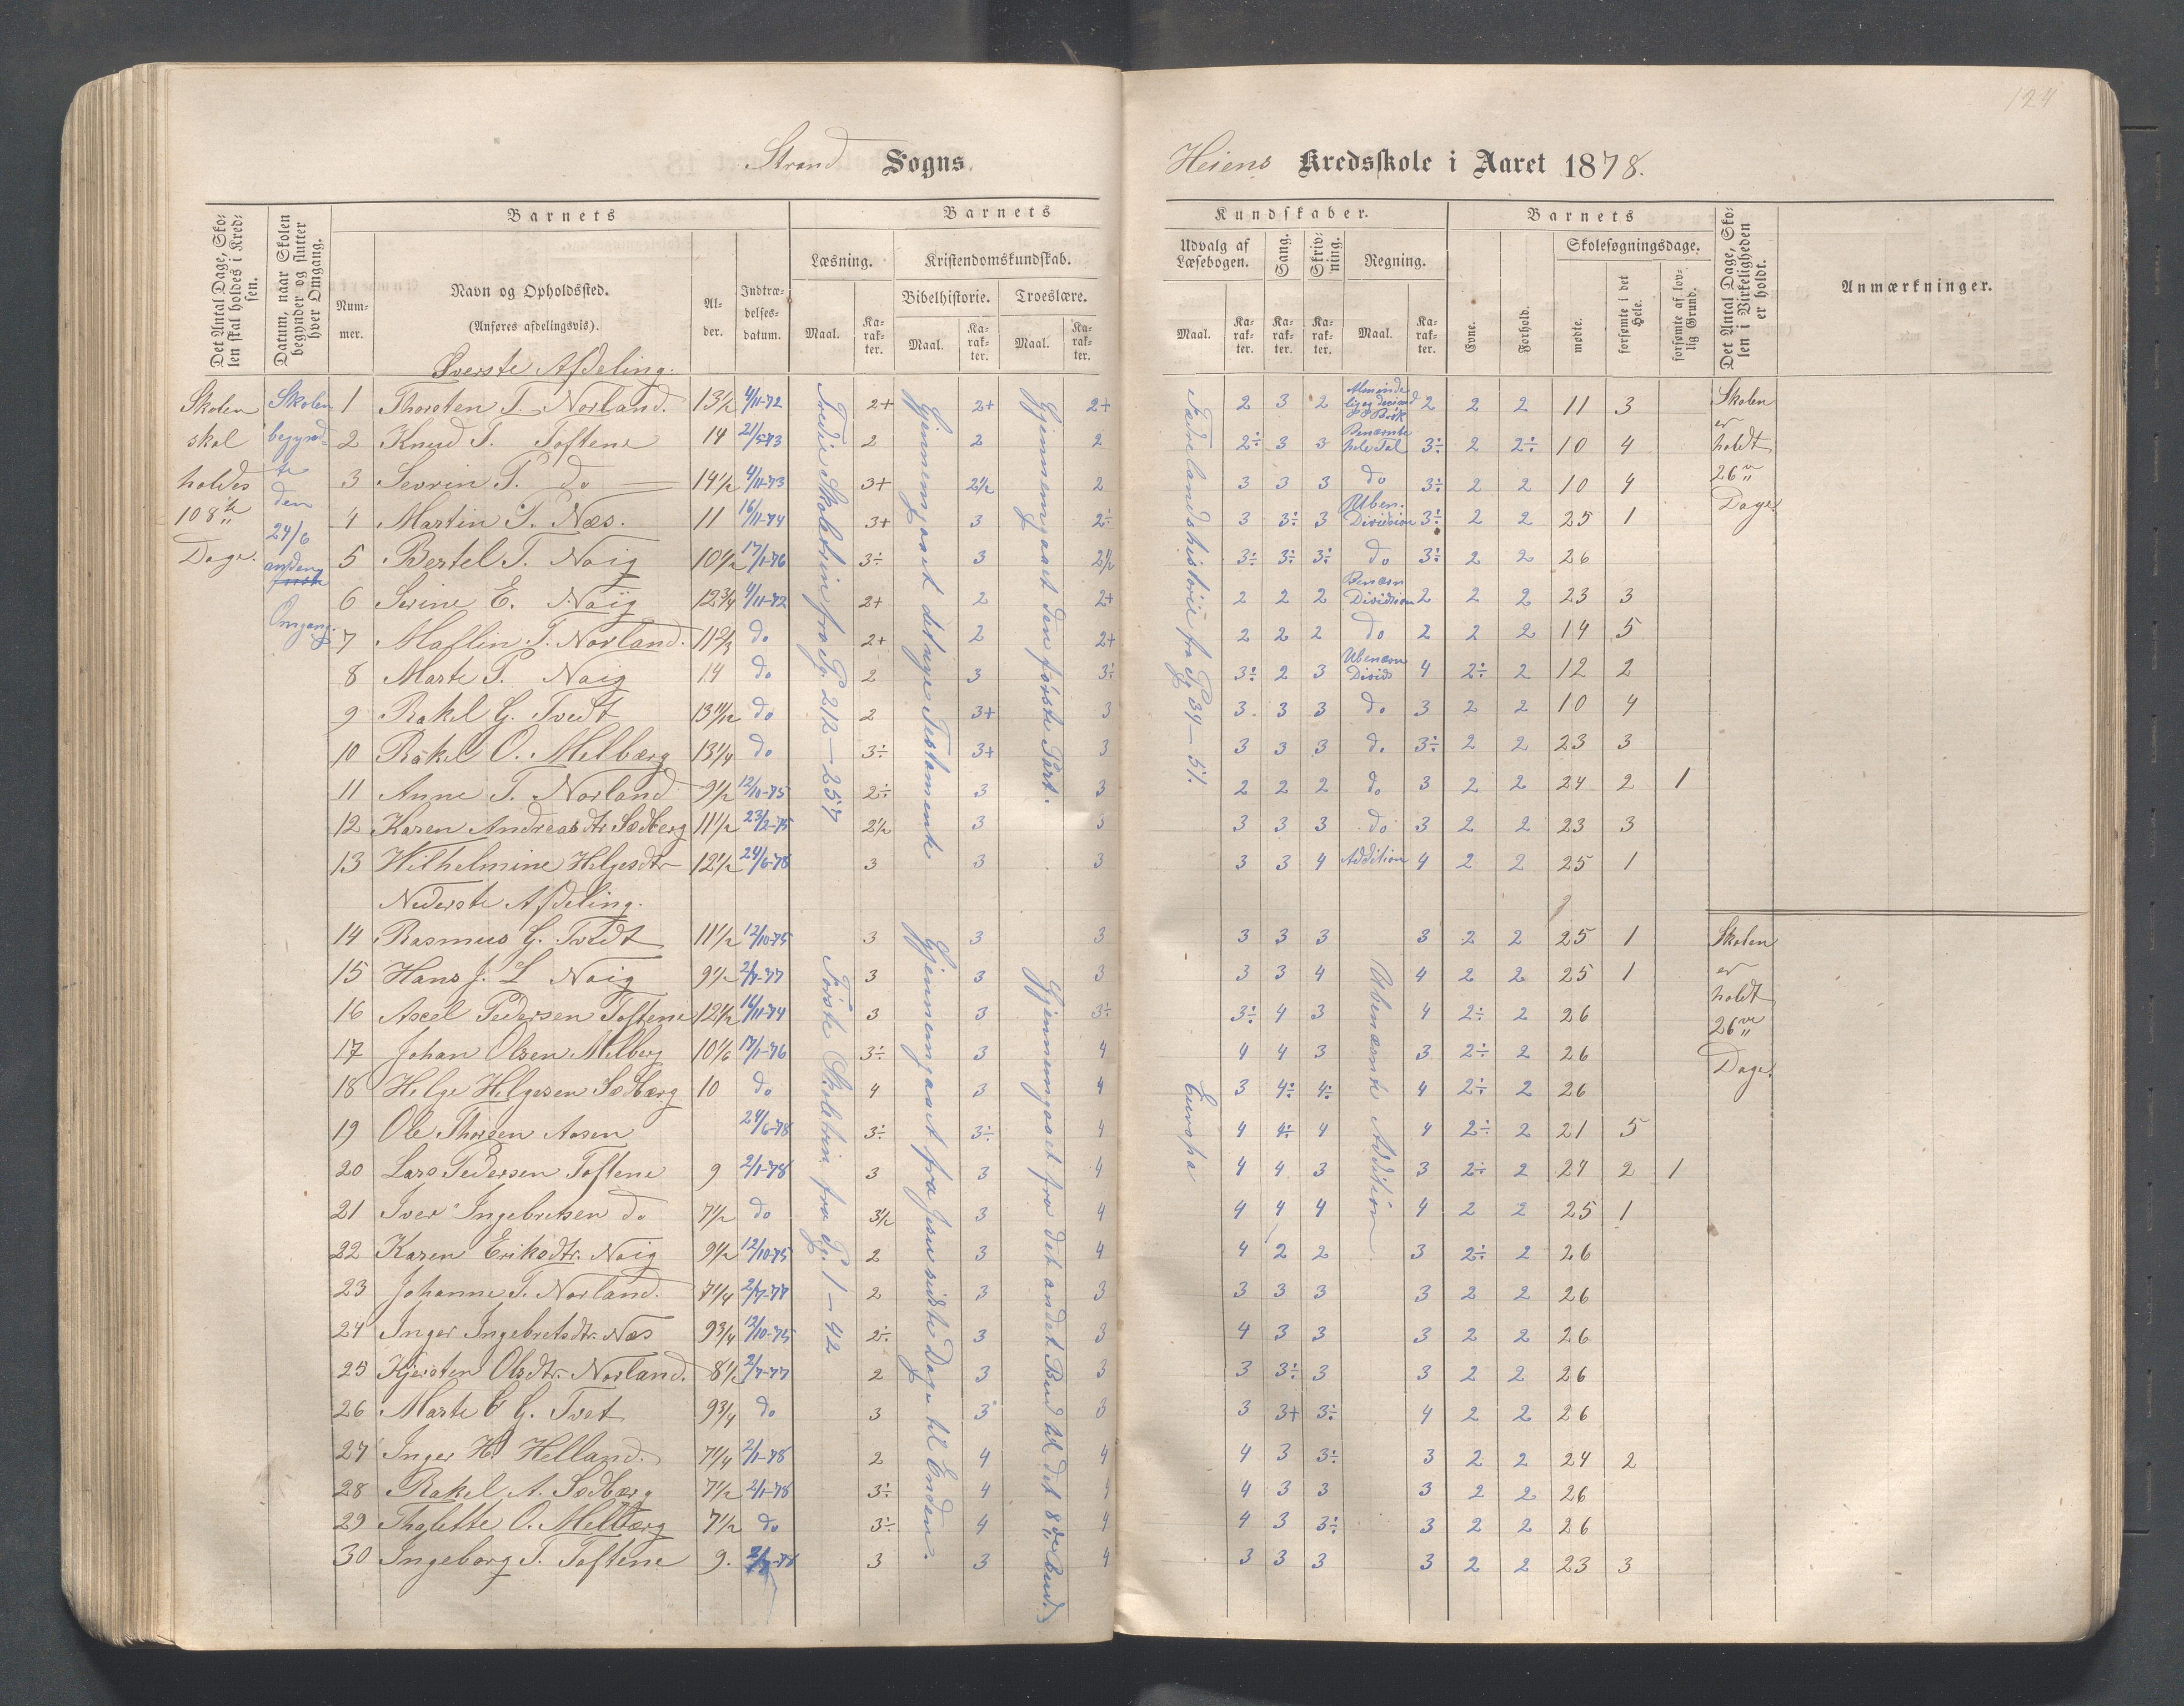 124
Strand Sogns
Heiens Kredsskole i Aaret 1878.
Det Antal Dage, Skolen skal holdes i Kredsen.
Datum, naar Skolen begynder og slutter hver Omgang.
Barnets
Nummer.
Navn og Opholdssted.
(Anføres afdelingsvis).
Alder.
Indtrædelsesdatum.
Barnets
Læsning.
Kristendomskundskab.
Bibelhistorie.
Troeslære.
Maal.
Karakter.
Maal.
Karakter.
Maal.
Karakter.
Kundskaber.
Udvalg af Læsebogen.
Sang.
Skrivning.
Regning.
Maal.
Karakter.
Karakter.
Karakter.
Maal.
Karakter.
Barnets
Evne.
Forhold.
Skolesøgningsdage.
mødte.
forsømte i det Hele.
forsømte af lovlig Grund.
Det Antal Dage, Skolen i Virkeligheden er holdt.
Anmærkninger.
Skolen skal holdes 108 Dage.
Skolen begyndte den 24/6 anden Omgang.
Øverste Afdeling.
Tredie Skoletrin fra Pg. 212–257
Gjennemgaaet det nye Testamente
Gjennemgaaet den første Part.
Fædrelandshistorie fra Pg 34–51.
Skolen er holdt 26 Dage.
1 Thorsten T. Norland. 13½ 4/11-72 2+ 2+ 2+ 2 3 2 2 2 2 11 3
2 Knud T. Toftene 14 21/5-73 2 2 2 2÷ 3 3 Benævnte hele Tal 3÷ 2 2÷ 10 4
3 Sevrin P. do 14½ 4/11-73 3+ 2½ 2 3 3 3 do 3÷ 2 2 10 4
4 Martin T. Næs. 11 16/11-74 3+ 3 2÷ 3 3÷ 3 Uben. Division 3÷ 2 2 25 1
5 Bertel T. Noig 10½ 17/1-76 3÷ 3 2½ 3÷ 3÷ 3÷ do 3÷ 2 2 26
6 Serine E. Noig 12¾ 4/11-72 2+ 2 2+ 2 2 2 Benævn Division 2 2 2 23 3
7 Maflin T. Norland. 11⅔ do 2+ 2 2+ 2 2 2 do 2 2 2 14 5
8 Marte P. Noig 14 do 2 3 3÷ 3÷ 2 3 Ubenævn Divids 4 2÷ 2 12 2
9 Rakel G. Tvedt 13 11/12 do 2 3+ 3 3 3 3 do 3 2 2 10 4
10 Rakel O. Melbærg 13¼ do 3÷ 3+ 3 3 3 3 do 3÷ 2 2 23 3
11 Anne T. Norland 9½ 12/10-75 2÷ 3 3 2 2 2 do 3 2 2 24 2 1
12 Karen Andreasdtr Sodberg 11½ 23/2-75 2½ 3 3 3 3 3 do 3 2 2 23 3
13 Wilhelmine Helgesdtr 12½ 24/6-78 3 3 3 3 3 4 Addition 4 2 2 25 1
Nederste Afdeling.
Første Skoletrin fra Pg. 1–42
Gjennemgaaet fra Jesu sidste Dage til Enden.
Gjennemgaaet fra det andet Bud til det 8de Bud.
Europa
Ubenævnte Addition
Skolen er holdt 26 Dage.
14 Rasmus G. Tvedt 11½ 12/10-75 3 3 3 3 3 3 3 2 2 25 1
15 Hans J. L Noig 9½ 2/7-77 3 3 3 3 3 4 4 2 2 25 1
16 Axel Pedersen Toftene 12½ 16/11-74 3 3 3÷ 3÷ 4 3 4 2÷ 2 26
17 Johan Olsen Melberg 10⅙ 17/1-76 3÷ 3 4 4 4 3 3 2÷ 2 26
18 Helge Helgesen Sodbærg 10 do 4 3 4 3 4÷ 4÷ 4 2÷ 2 26
19 Ole Thorsen Aasen 24/6-78 3÷ 3÷ 4 4 4÷ 4 4 2÷ 2 21 5
20 Lars Pedersen Toftene 9 2/1-78 3 3 4 4 4 3 3 2÷ 2 24 2 1
21 Iver Ingebretsen do 7½ do 3½ 3 4 4 4 4 4 2 2 25 1
22 Karen Eriksdtr. Noig 9½ 12/10-75 2 3 4 4 2 2 3 2÷ 2 26
23 Johanne T. Norland. 7¼ 2/7-77 2 3 3 3 3 3 3 2 2 26
24 Inger Ingebretsdtr. Næs 9¾ 12/10-75 2÷ 3 3 4 3 3 3 2 2 26
25 Kjersten Olsdtr. Norland. 8½ 2/7-77 2 3 3 3 3÷ 3 3 2 2 26
26 Marte E G. Tvet 9¾ do 3 3 3 3 3+ 3÷ 4 2 2 26
27 Inger H. Helland. 7¼ 2/1-78 2 4 4 4 3 3÷ 3 2 2 24 2
28 Rakel A. Sodbærg 7½ 2/1-78 3÷ 4 4 4 3 3 3 2 2 26
29 Thalette O. Melbærg 7½ do 3÷ 4 4 4 3 3÷ 3 2 2 26
30 Ingeborg T. Toftene 9. 3 3 4 3 3 3 3 2 2 23 3